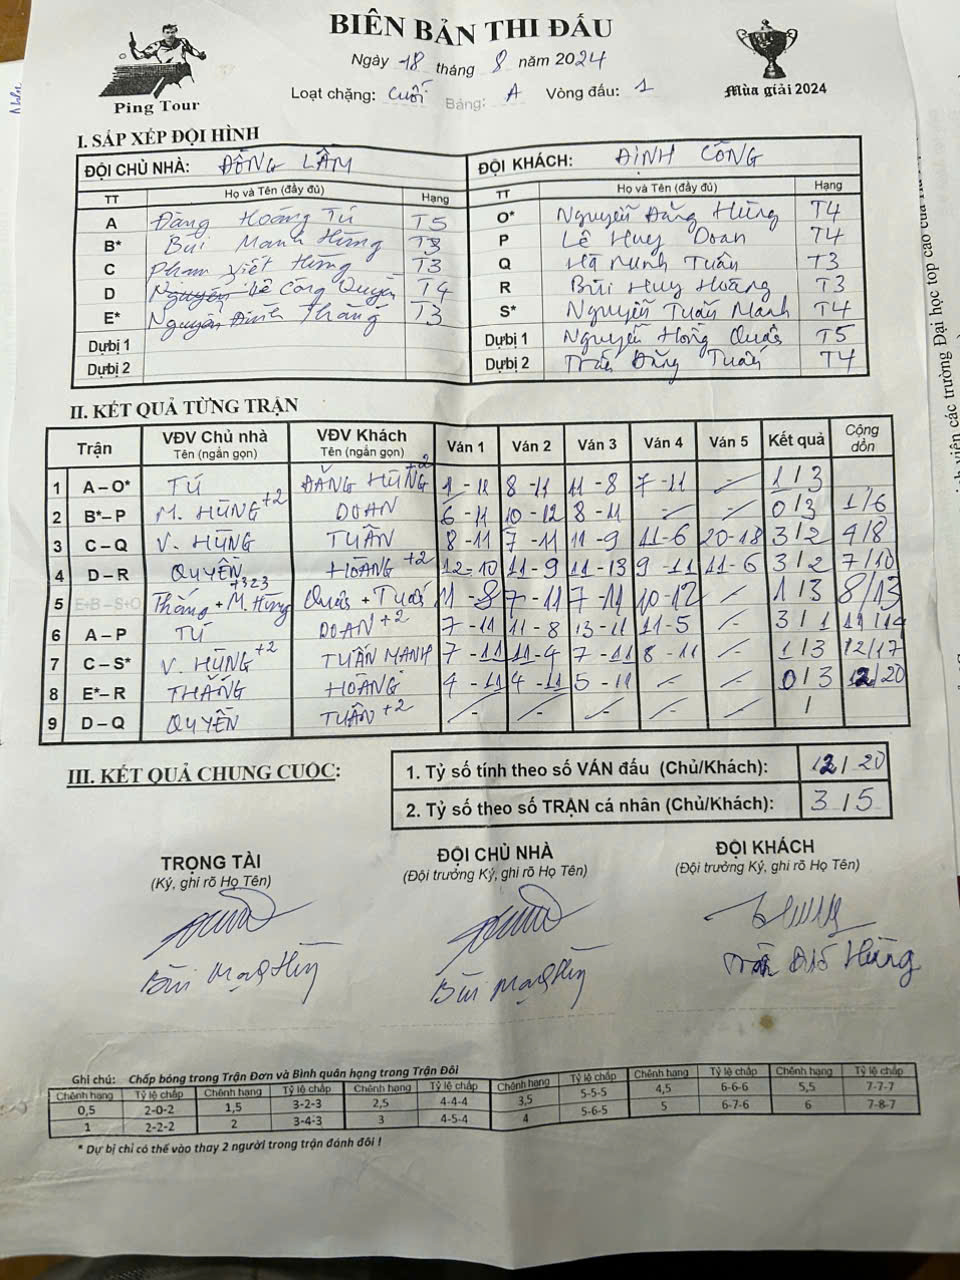 BIÊN BẢN THI ĐẤU
Ngày 18 tháng 8 năm 2024
Loạt chặng: Cuối Bảng: A Vòng đấu: 1
Ping Tour
Mùa giải 2024
I. SẮP XẾP ĐỘI HÌNH
ĐỘI CHỦ NHÀ: ĐỒNG LẦM ĐỘI KHÁCH: ĐỊNH CÔNG
TT Họ và Tên (đầy đủ) Hạng TT Họ và Tên (đầy đủ) Hạng
A Đàng Hoàng Tú T5 O* Nguyễn Đăng Hùng T4
B* Bùi Mạnh Hùng T3 P Lê Huy Doan T4
C Phạm Viết Hùng T3 Q Hà Minh Tuấn T3
D Lê Công Quyền T4 R Bùi Huy Hoàng T3
E* Nguyễn Đình Thắng T3 S* Nguyễn Tuấn Mạnh T4
Dự bị 1 Dự bị 1 Nguyễn Hồng Quân T5
Dự bị 2 Dự bị 2 Trần Đăng Tuấn T4
II. KẾT QUẢ TỪNG TRẬN
Trận VĐV Chủ nhà Tên (ngắn gọn) VĐV Khách Tên (ngắn gọn) Ván 1 Ván 2 Ván 3 Ván 4 Ván 5 Kết quả Cộng dồn
1 A – O* TÚ ĐĂNG HÙNG +2 1 - 11 8 - 11 11 - 8 7 - 11 - 1/3
2 B* – P M. HÙNG +2 DOAN 6 - 11 10 - 12 8 - 11 - - 0/3 1/6
3 C – Q V. HÙNG TUẤN 8 - 11 7 - 11 11 - 9 11 - 6 20 - 18 3/2 4/8
4 D – R QUYỀN HOÀNG +2 12 - 10 11 - 9 11 - 13 9 - 11 11 - 6 3/2 7/10
5 E+B – S+O Thắng + M. Hùng +323 Quân + Tuấn 11 - 8 7 - 11 7 - 11 10 - 12 - 1/3 8/13
6 A – P TÚ DOAN +2 7 - 11 11 - 8 13 - 11 11 - 5 - 3/1 11/14
7 C – S* V. HÙNG +2 TUẤN MẠNH 7 - 11 11 - 4 7 - 11 8 - 11 - 1/3 12/17
8 E* – R THẮNG HOÀNG 4 - 11 4 - 11 5 - 11 - - 0/3 12/20
9 D – Q QUYỀN TUẤN +2 - - - - - /
III. KẾT QUẢ CHUNG CUỘC:
1. Tỷ số tính theo số VÁN đấu (Chủ/Khách): 12/20
2. Tỷ số theo số TRẬN cá nhân (Chủ/Khách): 3/5
TRỌNG TÀI ĐỘI CHỦ NHÀ ĐỘI KHÁCH
(Ký, ghi rõ Họ Tên) (Đội trưởng Ký, ghi rõ Họ Tên) (Đội trưởng Ký, ghi rõ Họ Tên)
Bùi Mạnh Hùng Bùi Mạnh Hùng Trần Hùng
Ghi chú: Chấp bóng trong Trận Đơn và Bình quân hạng trong Trận Đôi
Chênh hạng Tỷ lệ chấp Chênh hạng Tỷ lệ chấp Chênh hạng Tỷ lệ chấp Chênh hạng Tỷ lệ chấp Chênh hạng Tỷ lệ chấp Chênh hạng Tỷ lệ chấp
0,5 2-0-2 1,5 3-2-3 2,5 4-4-4 3,5 5-5-5 4,5 6-6-6 5,5 7-7-7
1 2-2-2 2 3-4-3 3 4-5-4 4 5-6-5 5 6-7-6 6 7-8-7
* Dự bị chỉ có thể vào thay 2 người trong trận đánh đôi !
viên các trường Đại học top cao của